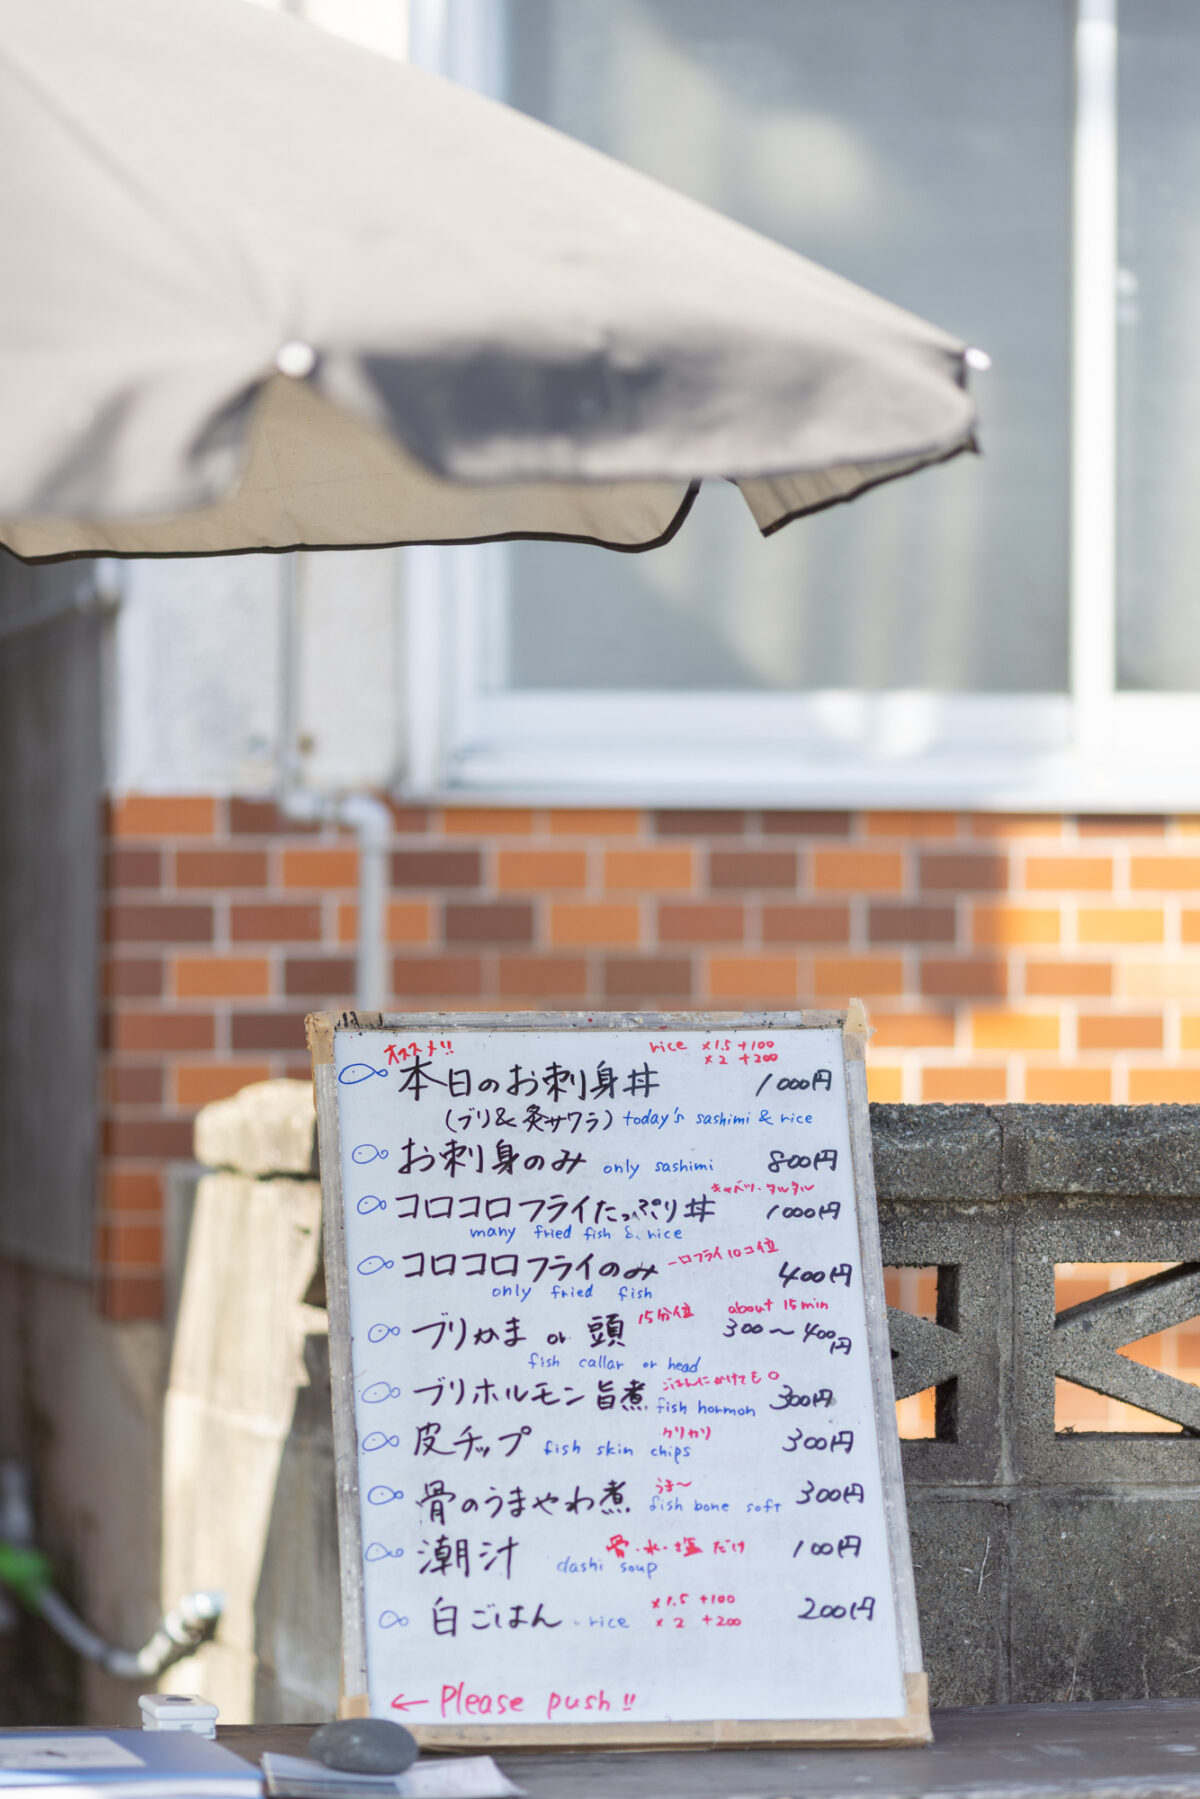 オススメ!! rice ×1.5 +100
×2 +200
本日のお刺身丼 1000円
(ブリ&炙サワラ) today's sashimi & rice
お刺身のみ only sashimi 800円
キャベツ・タルタル
コロコロフライたっぷり丼 1000円
many fried fish & rice
コロコロフライのみ 一口フライ10コ位 400円
only fried fish
ブリかま or 頭 15分位 about 15min
300〜400円
fish callar or head
ブリホルモン旨煮 ごはんにかけても○ fish hormon 300円
皮チップ fish skin chips カリカリ 300円
骨のうまやわ煮 うま〜 fish bone soft 300円
潮汁 骨・水・塩だけ 100円
dashi soup
白ごはん rice ×1.5 +100 200円
×2 +200
← Please push!!